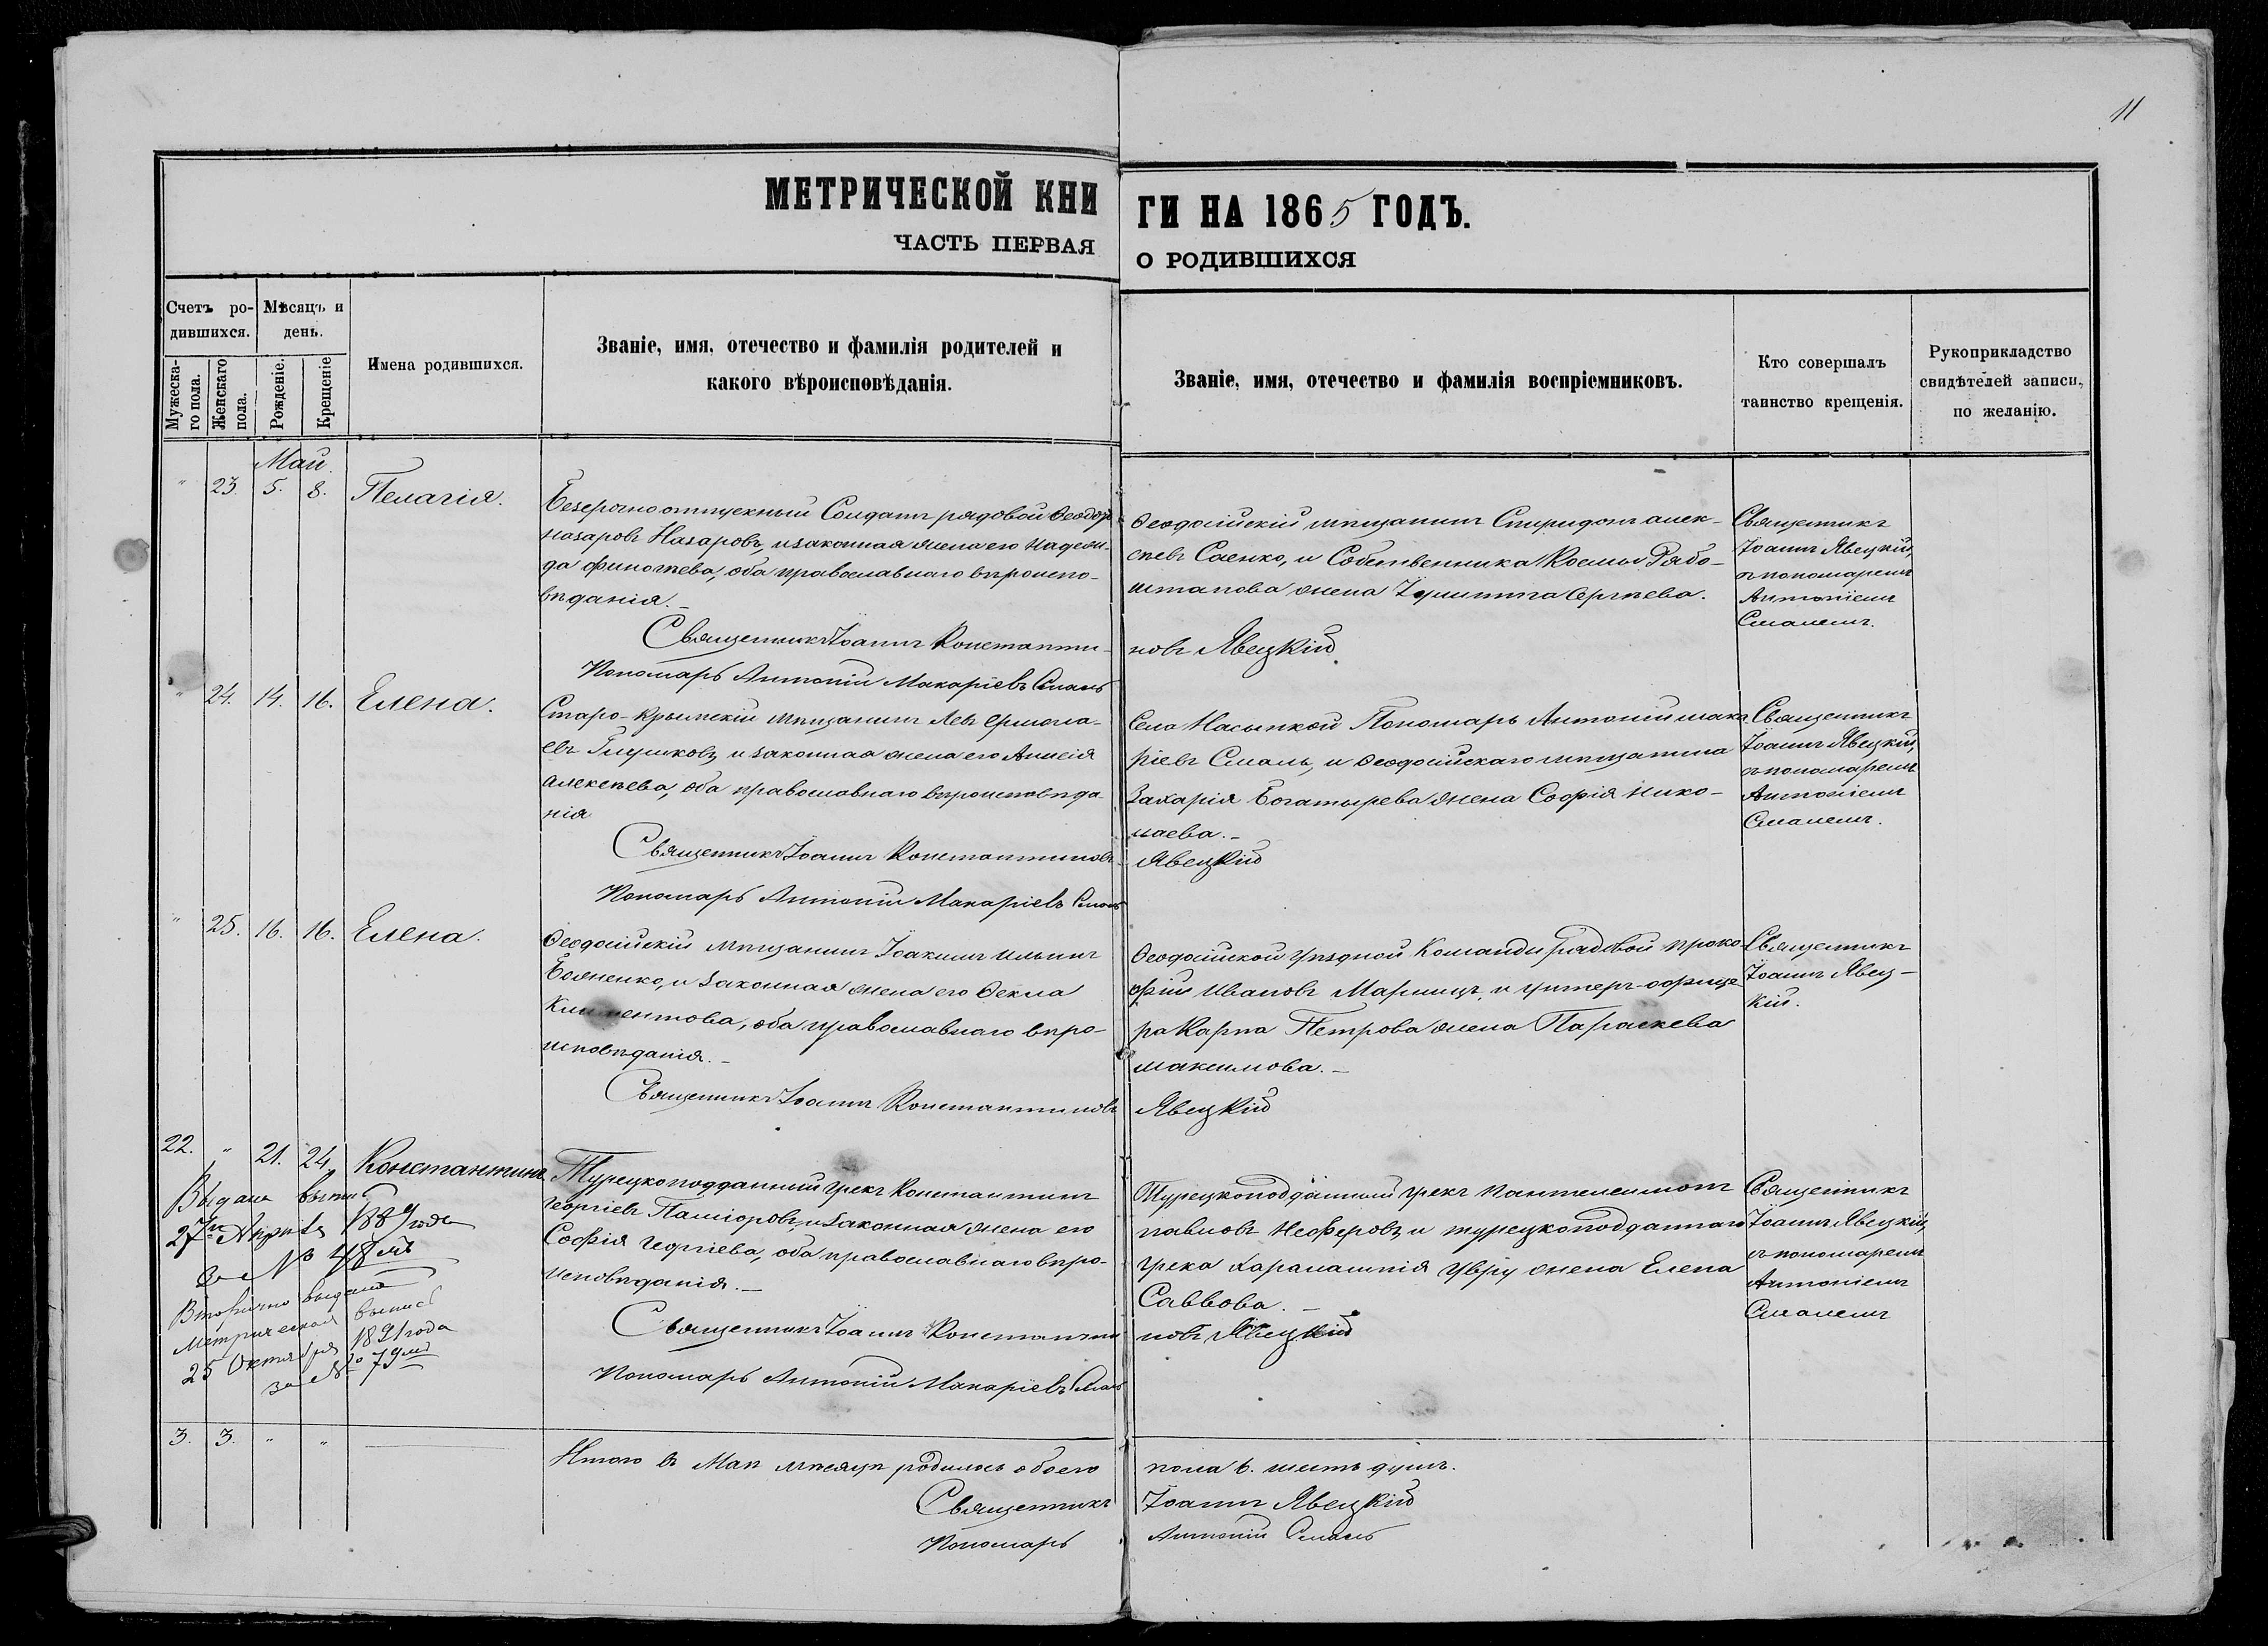 11
МЕТРИЧЕСКОЙ КНИ
ГИ НА 1865 ГОДЪ.
ЧАСТЬ ПЕРВАЯ
О РОДИВШИХСЯ
Счетъ ро-
дившихся.
Мѣсяцъ и
день.
Мужеска-
го пола.
Женскаго
пола.
Рожденіе.
Крещеніе
Имена родившихся.
Званіе, имя, отечество и фамилія родителей и
какого вѣроисповѣданія.
Званіе, имя, отечество и фамилія воспріемниковъ.
Кто совершалъ
таинство крещенія.
Рукоприкладство
свидѣтелей записи,
по желанію.
Май.
" 23. 5. 8. Пелагія.
Безсрочноотпускный Солдатъ рядовой Ѳеодоръ
Назаровъ Назаровъ, и законная жена его Надеж-
да Финогѣева, оба православнаго вѣроиспо-
вѣданія.–
Священникъ Іоаннъ Константи-
Пономарь Антоній Макаріевъ Смаль
Ѳеодосійскій мѣщанинъ Спиридонъ Алек-
сѣевъ Саенко, и Собственника Космы Рябо-
штанова жена Іулитта Сергѣева.
новъ Явецкій
Священникъ
Іоаннъ Явецкій,
съ пономаремъ
Антоніемъ
Смалемъ.
" 24. 14. 16. Елена.
Старо-Крымскій мѣщанинъ Левъ Ермола-
евъ Глушковъ, и законная жена его Анисія
Алексѣева, оба православнаго вѣроисповѣда-
нія
Священникъ Іоаннъ Константиновъ
Пономарь Антоній Макаріевъ Смаль
Села Насыпкой Пономарь Антоній Мака-
ріевъ Смаль, и Ѳеодосійскаго мѣщанина
Захарія Богатырева жена Софія Нико-
лаева.–
Явецкій
Священникъ
Іоаннъ Явецкій,
съ пономаремъ
Антоніемъ
Смалемъ.
" 25. 16. 16. Елена.
Ѳеодосійскій мѣщанинъ Іоакимъ Ильинъ
Бояненко, и законная жена его Ѳекла
Климентова, оба православнаго вѣро-
исповѣданія.–
Священникъ Іоаннъ Константиновъ
Ѳеодосійской уѣздной Команды Рядовой Проко-
фій Ивановъ Марницъ, и унтеръ-офице-
ра Карпа Петрова жена Параскева
Максимова.–
Явецкій
Священникъ
Іоаннъ Явец-
кій.
22. " 21. 24. Константинъ.
Выдана выпись
27го Апрѣля 1889 года
за № 48мъ
Вторично выдана
метрическая выпись
25 Октября 1891 года
за № 79мъ
Турецкоподданный грекъ Константинъ
Георгіевъ Паміоровъ, и законная жена его
Софія Георгіева, оба православнаго вѣро-
исповѣданія.–
Священникъ Іоаннъ Константи
Пономарь Антоній Макаріевъ Смаль
Турецкоподданный грекъ Пантелеимонъ
Павловъ Неоферовъ, и турецкоподданнаго
грека Харалампія Увру жена Елена
Саввова.–
новъ Явецкій
Священникъ
Іоаннъ Явецкій,
съ пономаремъ
Антоніемъ
Смалемъ
3. 3. " "
Итого въ Маѣ мѣсяцѣ родилось обоего
пола 6. шесть душъ.
Священникъ
Іоаннъ Явецкій
Пономарь
Антоній Смаль